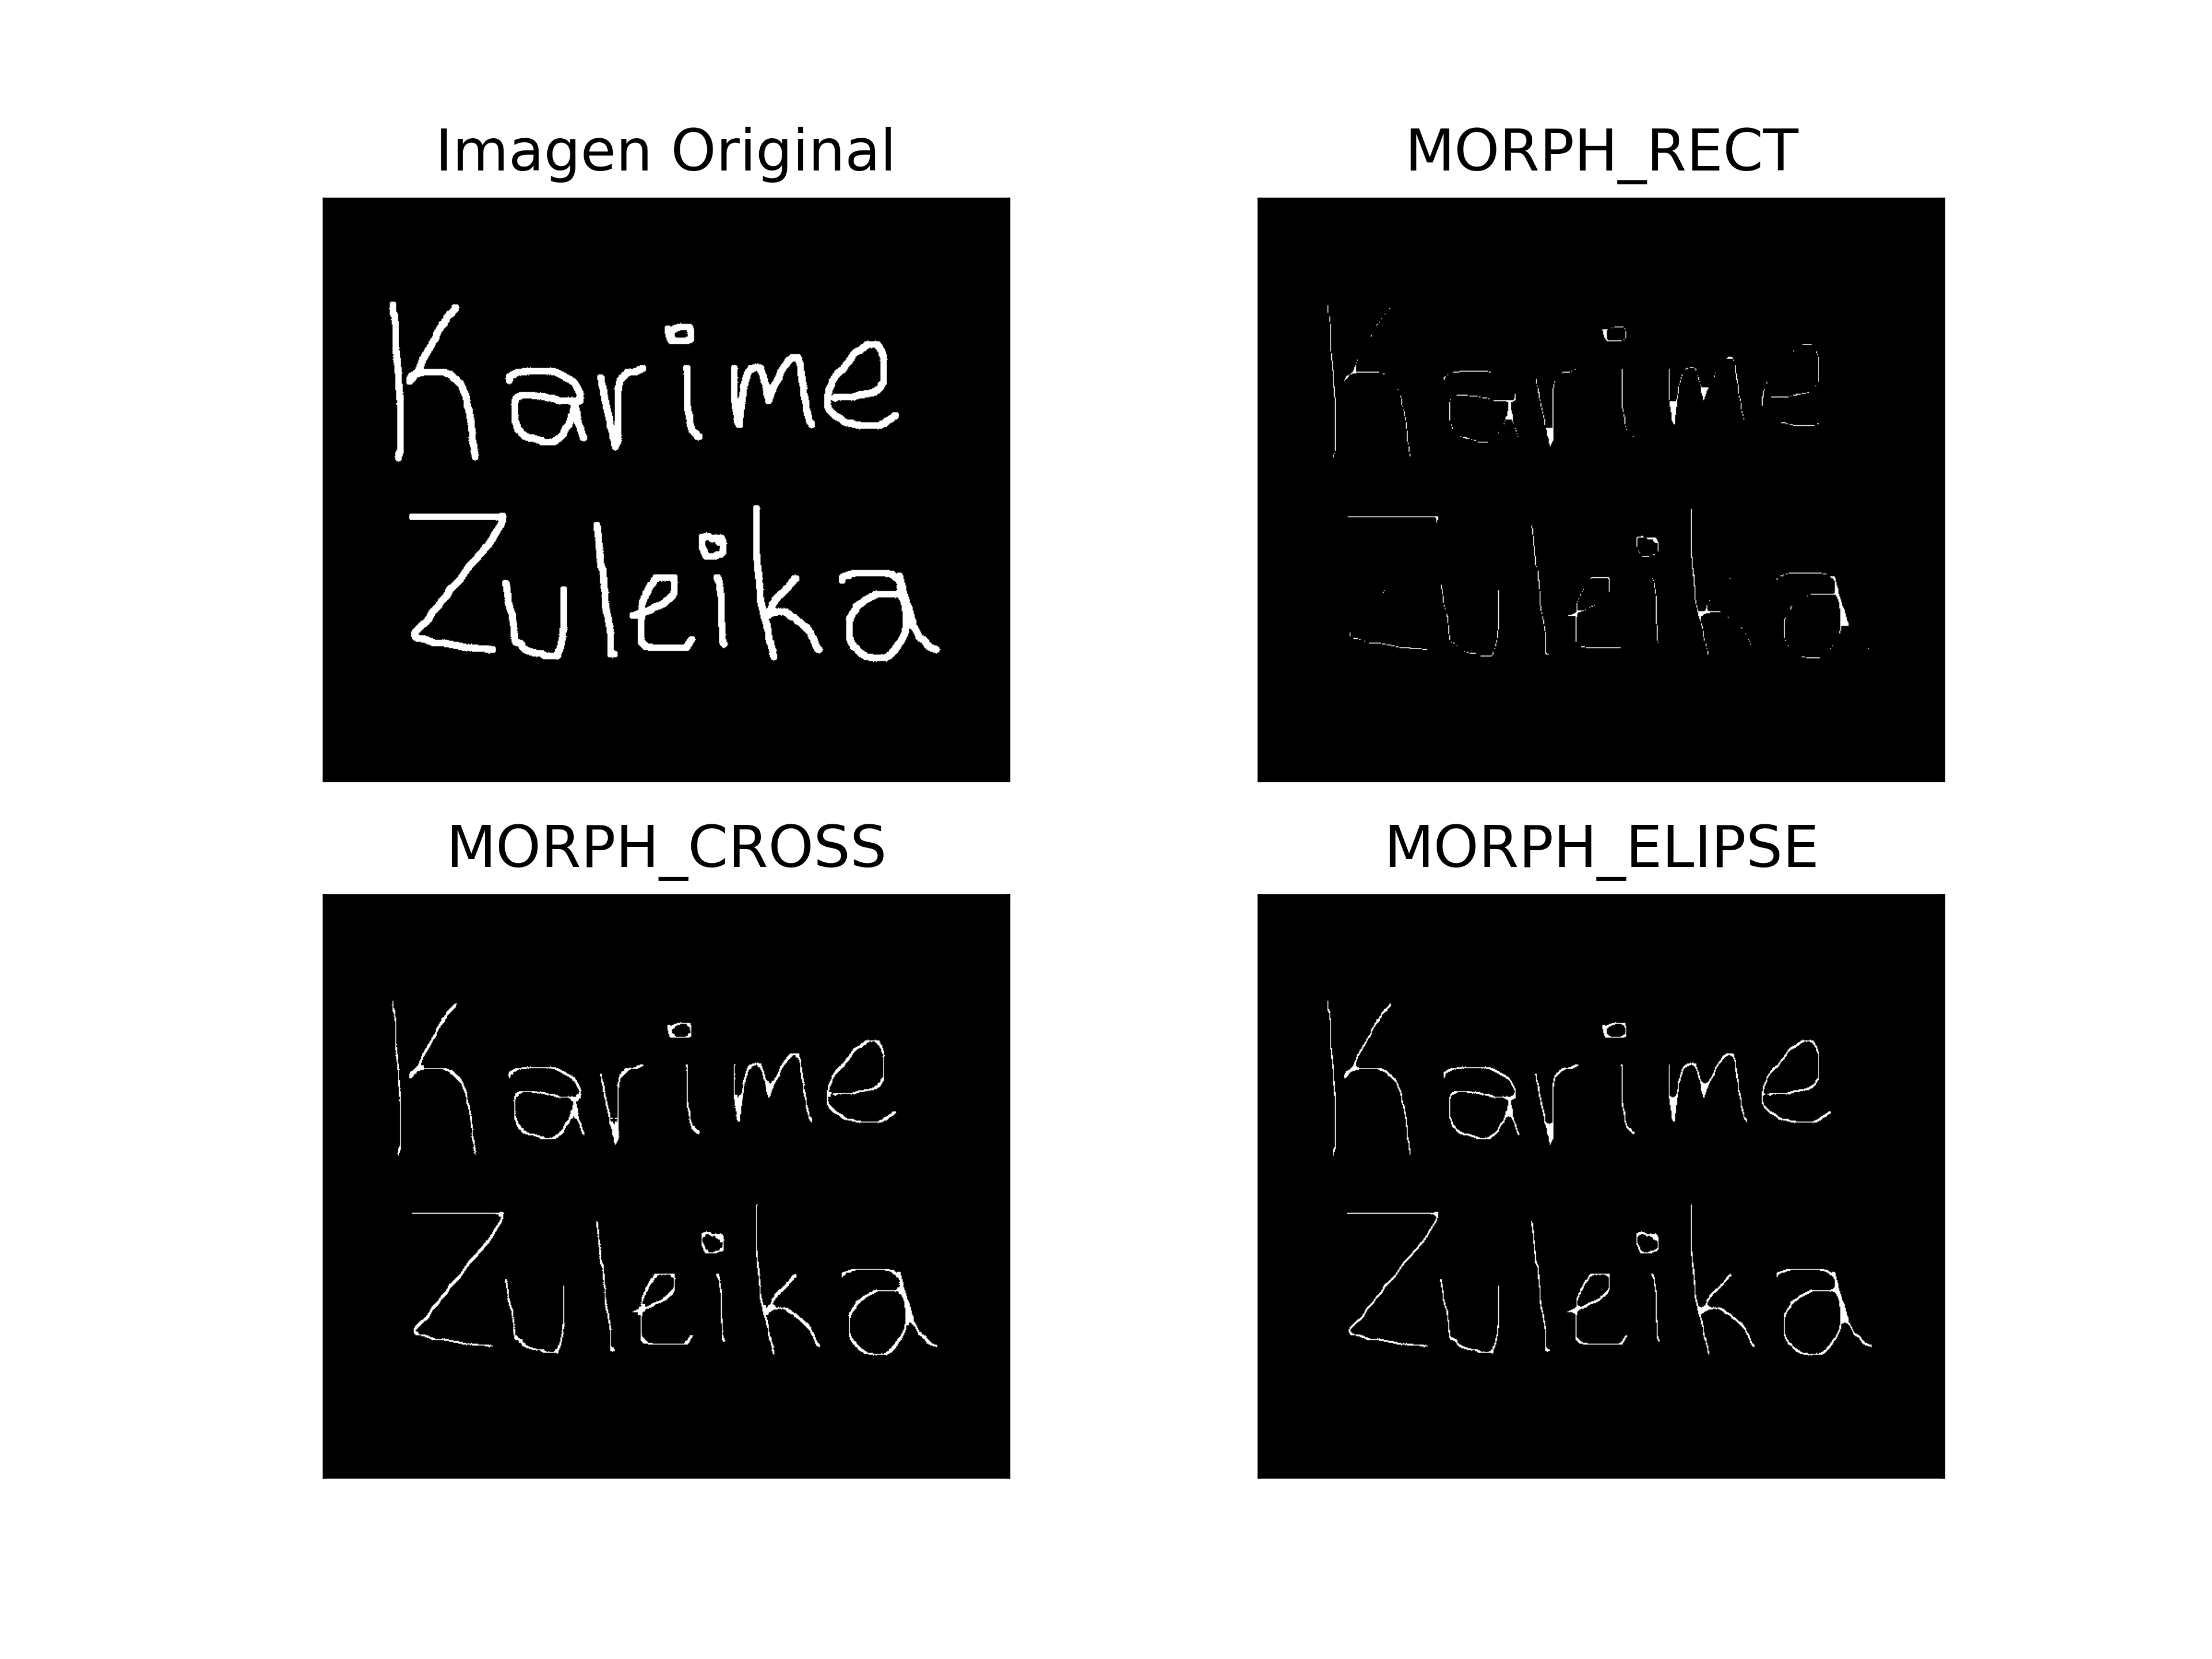 Imagen Original
Karine
Zuleika
MORPH_RECT
Karine
Zuleika
MORPH_CROSS
Karine
Zuleika
MORPH_ELIPSE
Karine
Zuleika